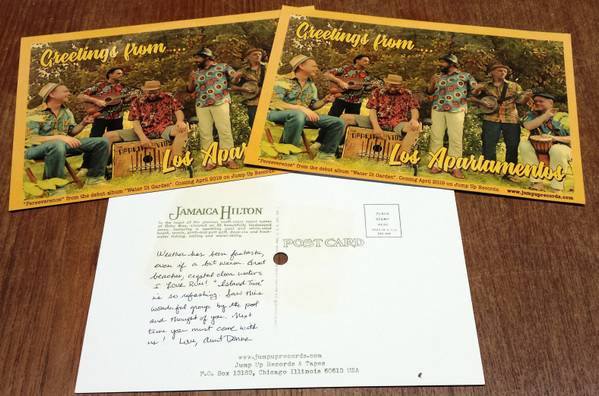 Greetings from.....
Los Apartamentos
"Perseverance" from the debut album "Water Di Garden". Coming April 2019 on Jump Up Records
Greetings from.....
Los Apartamentos
"Perseverance" from the debut album "Water Di Garden". Coming April 2019 on Jump Up Records
www.jumpuprecords.com
JAMAICA HILTON
POST CARD
PLACE
STAMP
HERE
Weather has been fantastic,
even if a bit warm. Great
beaches, crystal clear waters
I Love Rum! "Island Time"
is so refreshing. Saw this
wonderful group by the pool
and thought of you. Next
time you must come with
us! Love, Aunt Donna
www.jumpuprecords.com
Jump Up Records & Tapes
P.O. Box 13189, Chicago Illinois 60613 USA